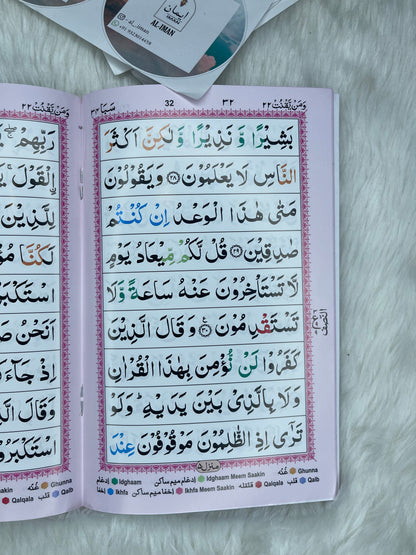 ایمان
AL-IMAN
al_iman
وَمَنْ يَّقْنُتْ ٢٢
٣٢
32
سَبَا ٣٤
وَمَنْ يَّقْنُتْ ٢٢
بَشِيْرًا وَّ نَذِيْرًا وَّلٰكِنَّ اَكْثَرَ
النَّاسِ لَا يَعْلَمُوْنَ ۝٢٨ وَيَقُوْلُوْنَ
مَتٰى هٰذَا الْوَعْدُ اِنْ كُنْتُمْ
صٰدِقِيْنَ ۝٢٩ قُلْ لَّكُمْ مِّيْعَادُ يَوْمٍ
لَّا تَسْتَاْخِرُوْنَ عَنْهُ سَاعَةً وَّلَا
تَسْتَقْدِمُوْنَ ۝٣٠ وَقَالَ الَّذِيْنَ
كَفَرُوْا لَنْ نُّؤْمِنَ بِهٰذَا الْقُرْاٰنِ
وَلَا بِالَّذِيْ بَيْنَ يَدَيْهِ ؕ وَلَوْ
تَرٰٓى اِذِ الظّٰلِمُوْنَ مَوْقُوْفُوْنَ عِنْدَ
منزل ٥
النصف
رَبِّهِمْ
الْقَوْلَ
لِلَّذِيْنَ
لَكُنَّا
اسْتَكْبَ
اَنَحْنُ صَ
اِذْ جَآءَ
وَقَالَ الَّ
اسْتَكْبَرُوْ
غُنّه Ghunna
ادغام Idghaam
ادغام ميم ساكن Idghaam Meem Saakin
قلب Qalb
قلقله Qalqala
اخفا ميم ساكن Ikhfa Meem Saakin
اخفا Ikhfa
Saakin
غُنّه Ghunna
Qalqala
قلب Qalb